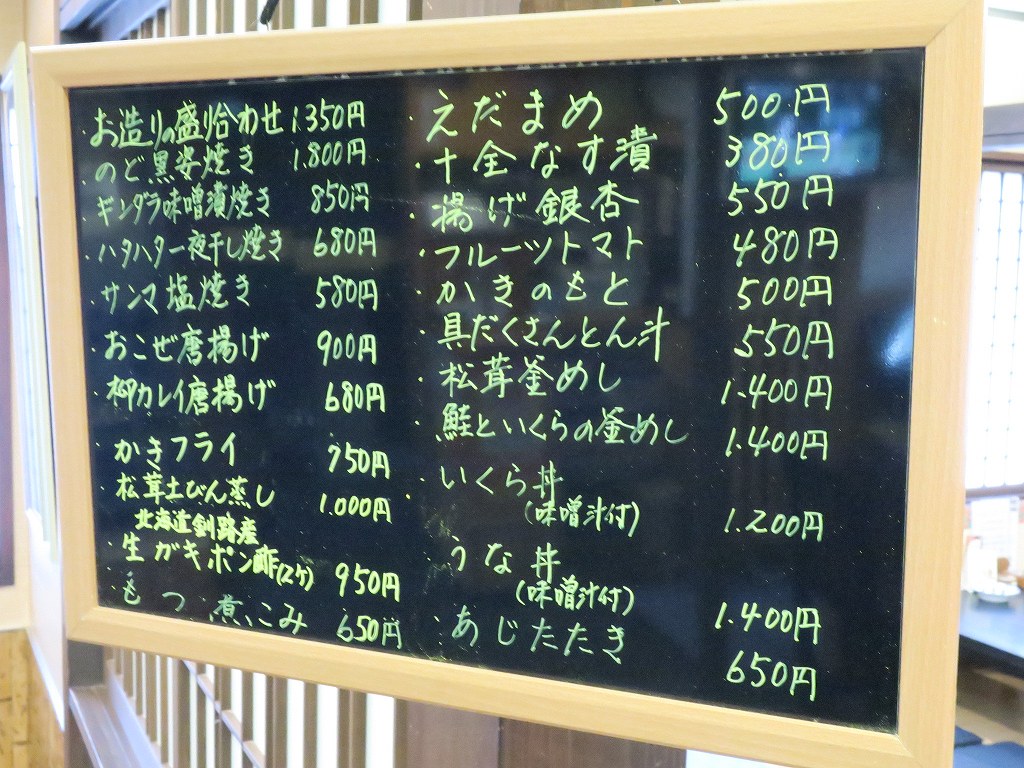 ・お造りの盛り合わせ 1.350円
・のど黒姿焼き 1.800円
・ギンダラ味噌漬焼き 850円
・ハタハタ一夜干し焼き 680円
・サンマ塩焼き 580円
・おこぜ唐揚げ 900円
・柳カレイ唐揚げ 680円
・かきフライ 750円
・松茸土びん蒸し 1.000円
北海道釧路産
・生ガキポン酢(2ケ) 950円
・もつ煮こみ 650円
・えだまめ 500円
・十全なす漬 380円
・揚げ銀杏 550円
・フルーツトマト 480円
・かきのもと 500円
・具だくさんとん汁 550円
・松茸釜めし 1.400円
・鮭といくらの釜めし 1.400円
・いくら丼
(味噌汁付) 1.200円
・うな丼
(味噌汁付) 1.400円
・あじたたき 650円